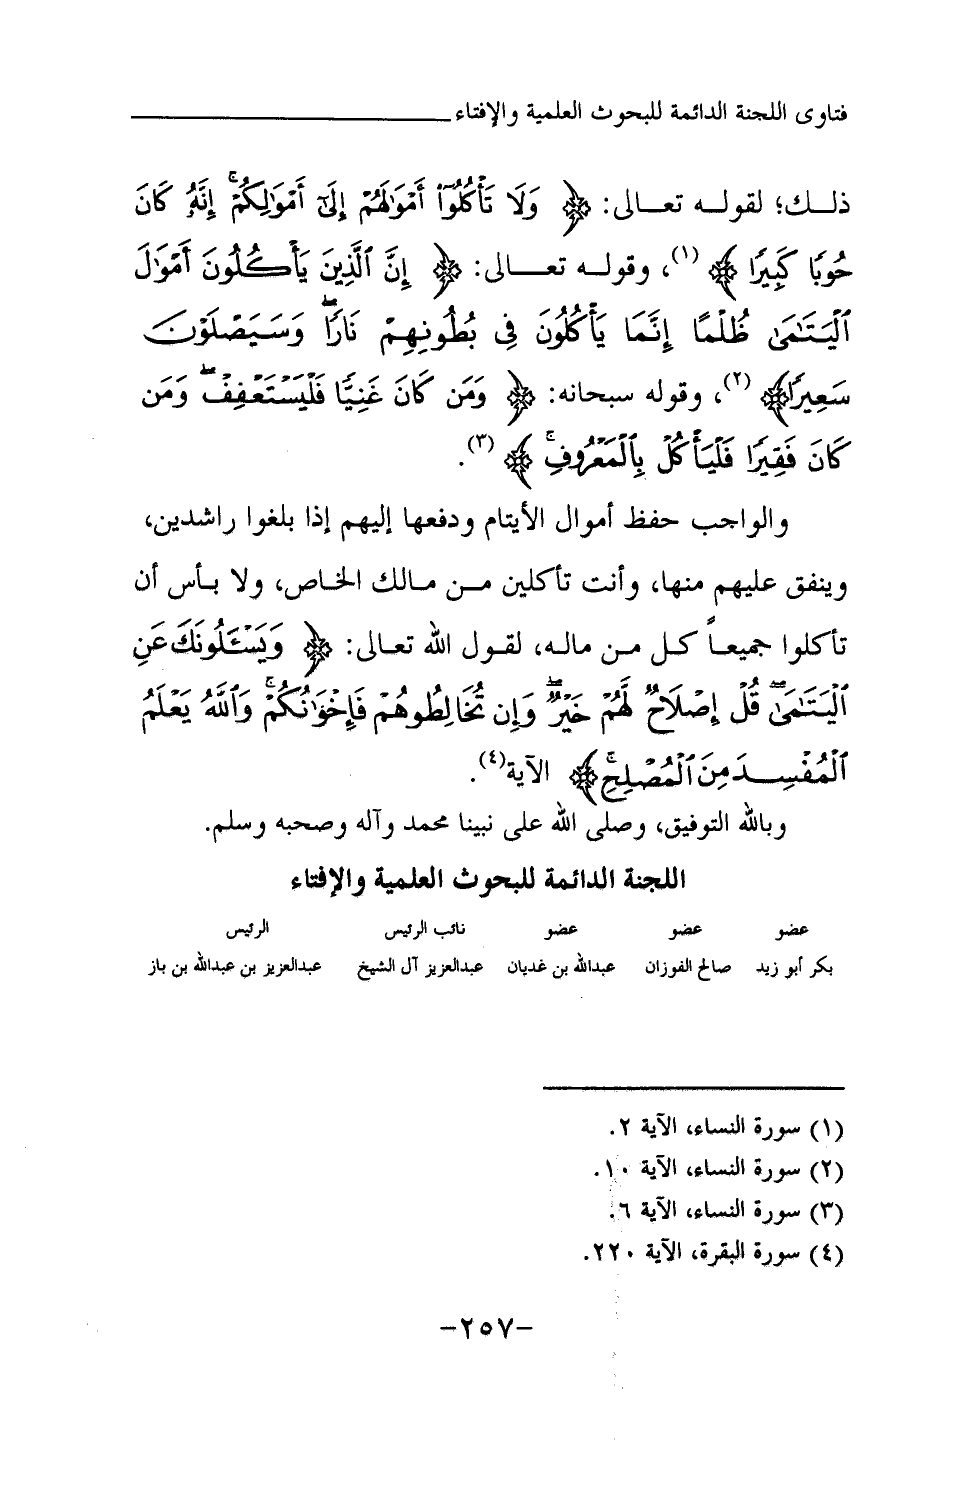 فتاوى اللجنة الدائمة للبحوث العلمية والإفتاء
ذلك؛ لقوله تعالى: ﴿ وَلَا تَأْكُلُوٓا۟ أَمْوَٰلَهُمْ إِلَىٰٓ أَمْوَٰلِكُمْ ۚ إِنَّهُۥ كَانَ
حُوبًا كَبِيرًا ﴾ (١)، وقوله تعالى: ﴿ إِنَّ ٱلَّذِينَ يَأْكُلُونَ أَمْوَٰلَ
ٱلْيَتَٰمَىٰ ظُلْمًا إِنَّمَا يَأْكُلُونَ فِى بُطُونِهِمْ نَارًا ۖ وَسَيَصْلَوْنَ
سَعِيرًا﴾ (٢)، وقوله سبحانه: ﴿ وَمَن كَانَ غَنِيًّا فَلْيَسْتَعْفِفْ ۖ وَمَن
كَانَ فَقِيرًا فَلْيَأْكُلْ بِٱلْمَعْرُوفِ ۚ ﴾ (٣).
والواجب حفظ أموال الأيتام ودفعها إليهم إذا بلغوا راشدين،
وينفق عليهم منها، وأنت تأكلين من مالك الخاص، ولا بأس أن
تأكلوا جميعاً كل من ماله، لقول الله تعالى: ﴿ وَيَسْـَٔلُونَكَ عَنِ
ٱلْيَتَٰمَىٰ ۖ قُلْ إِصْلَاحٌ لَّهُمْ خَيْرٌ ۖ وَإِن تُخَالِطُوهُمْ فَإِخْوَٰنُكُمْ ۚ وَٱللَّهُ يَعْلَمُ
ٱلْمُفْسِدَ مِنَ ٱلْمُصْلِحِ ۚ ﴾ الآية(٤).
وبالله التوفيق، وصلى الله على نبينا محمد وآله وصحبه وسلم.
اللجنة الدائمة للبحوث العلمية والإفتاء
عضو عضو عضو نائب الرئيس الرئيس
بكر أبو زيد صالح الفوزان عبدالله بن غديان عبدالعزيز آل الشيخ عبدالعزيز بن عبدالله بن باز
(١) سورة النساء، الآية ٢.
(٢) سورة النساء، الآية ١٠.
(٣) سورة النساء، الآية ٦.
(٤) سورة البقرة، الآية ٢٢٠.
-٢٥٧-